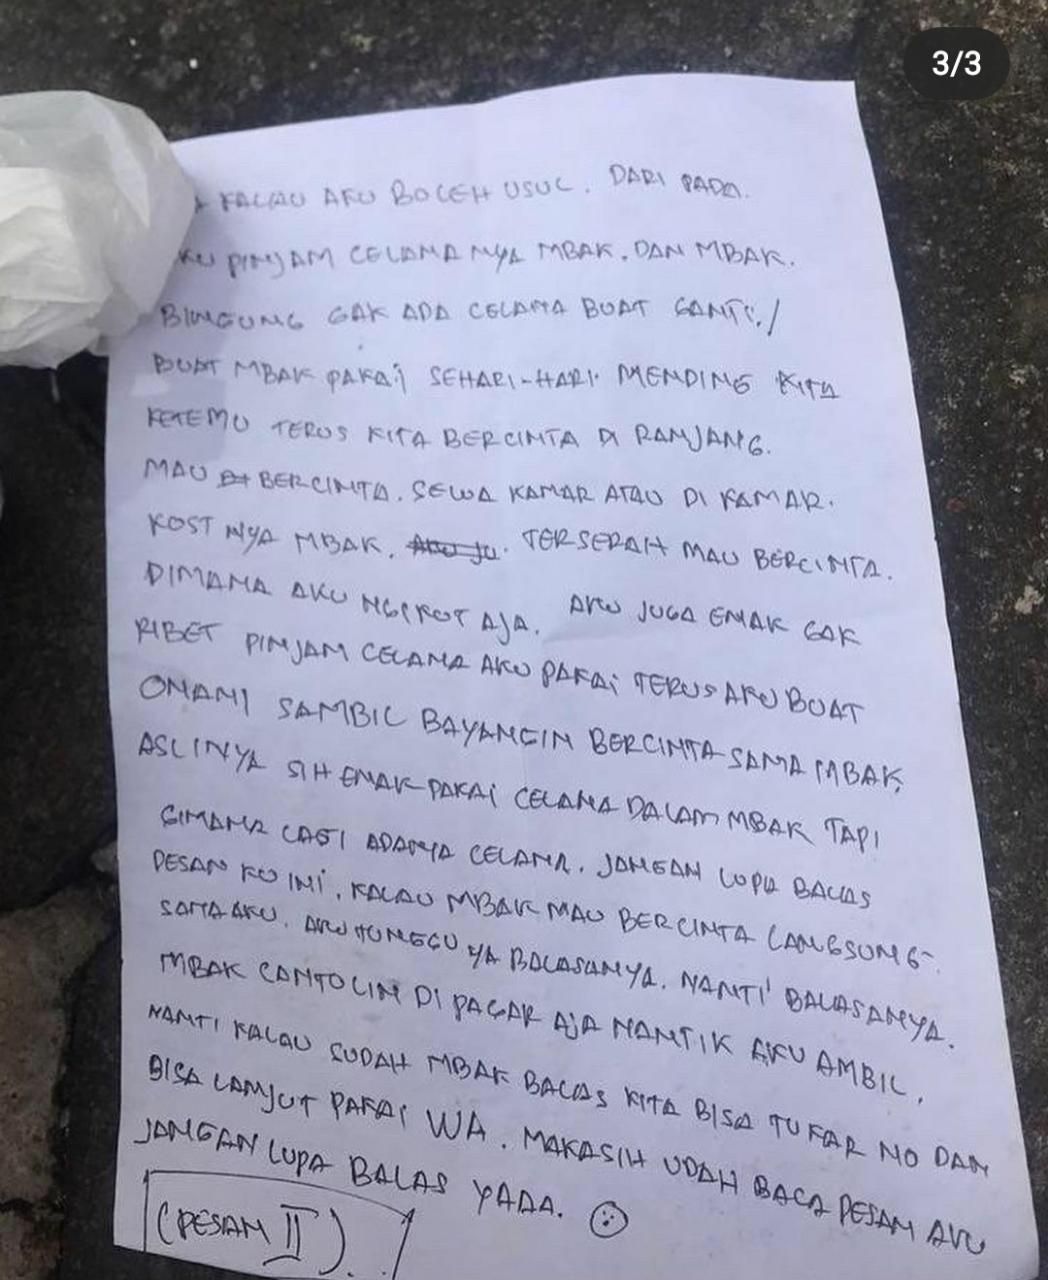 3/3
KALAU AKU BOLEH USUL. DARI PADA.
KU PINJAM CELANA NYA MBAK. DAN MBAK.
BINGUNG GAK ADA CELANA BUAT GANTI./
BUAT MBAK PAKAI SEHARI-HARI. MENDING KITA
KETEMU TERUS KITA BERCINTA DI RANJANG.
MAU BERCINTA. SEWA KAMAR ATAU DI KAMAR.
KOST NYA MBAK. TERSERAH MAU BERCINTA.
DIMANA AKU NGIKUT AJA. AKU JUGA ENAK GAK
RIBET PINJAM CELANA AKU PAKAI TERUS AKU BUAT
ONANI SAMBIL BAYANGIN BERCINTA SAMA MBAK.
ASLINYA SIH ENAK PAKAI CELANA DALAM MBAK TAPI
GIMANA LAGI ADANYA CELANA. JANGAN LUPA BALAS
PESAN KU INI. KALAU MBAK MAU BERCINTA LANGSUNG.
SAMA AKU. AKU TUNGGU YA BALASANYA. NANTI BALASANYA.
MBAK CANTOLIN DI PAGAR AJA NANTIK AKU AMBIL.
NANTI KALAU SUDAH MBAK BALAS KITA BISA TUKAR NO DAN
BISA LANJUT PAKAI WA. MAKASIH UDAH BACA PESAN AKU
JANGAN LUPA BALAS YADA.
(PESAN II).